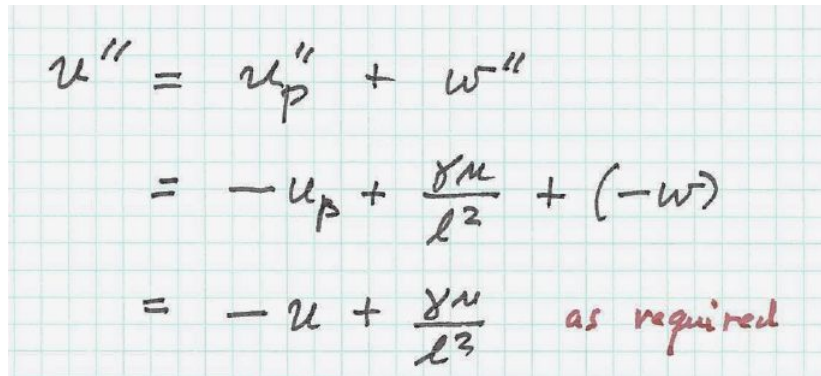 u'' = u_p'' + w''
= - u_p + γμ/ℓ² + (-w)
= - u + γμ/ℓ² as required